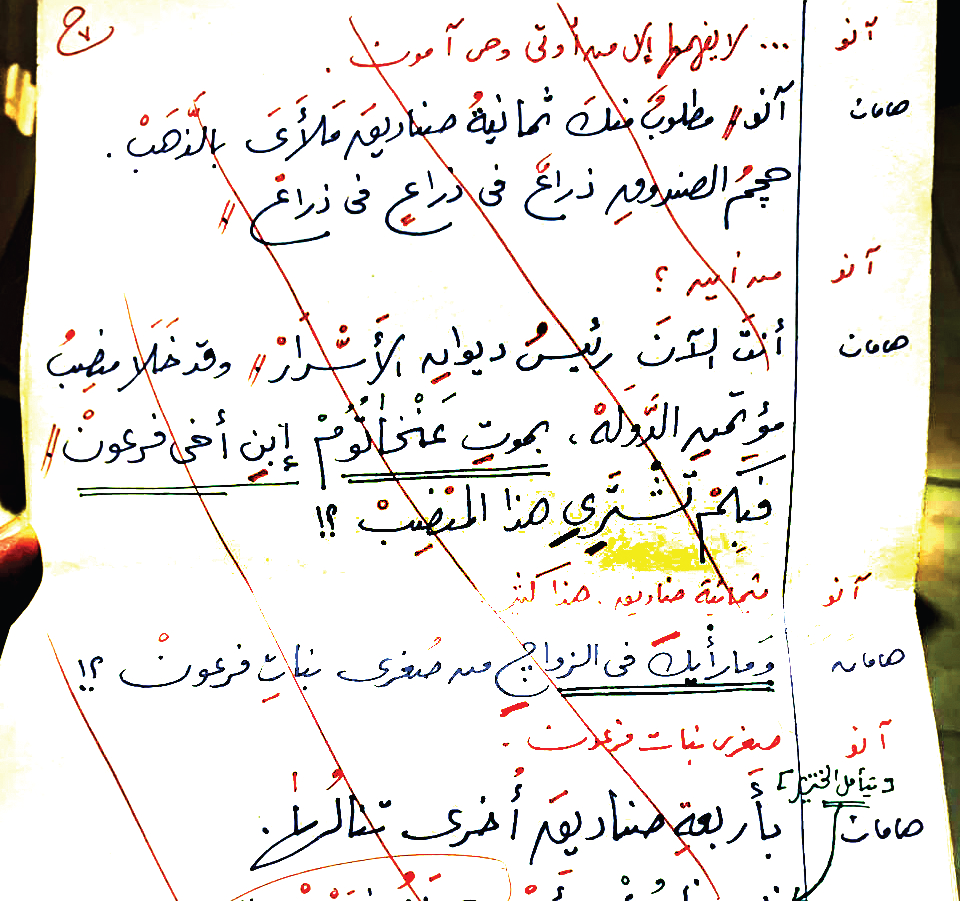 ح٧
آنو ... لا يفهمها إلا من أوتى وحى آمون .
هامان آنو، مطلوبٌ منك ثمانيةُ صناديقَ مَلأَى بالذَّهَبْ .
حجمُ الصندوقِ ذراعٌ فى ذراعٍ فى ذراعْ
آنو من أين ؟
هامان أنتَ الآنَ رئيسُ ديوانِ الأَسْرَارْ، وقد خَلَا منصِبُ
مؤتمنِ الدَّولَهْ ، بموتِ عَنْخاتُومْ إبنِ أخى فرعونْ
فبِكمْ تَشْتَرِي هذا المنْصِبْ ؟!
آنو ثمانية صناديق . هذا كثير
هامان وَما رأْيكَ فى الزواجِ من صُغرى بناتِ فرعونْ ؟!
آنو صغرى بنات فرعون .
[يتأمل الخنجر]
هامان بأَربعةِ صناديقَ أُخرى تنالُها .